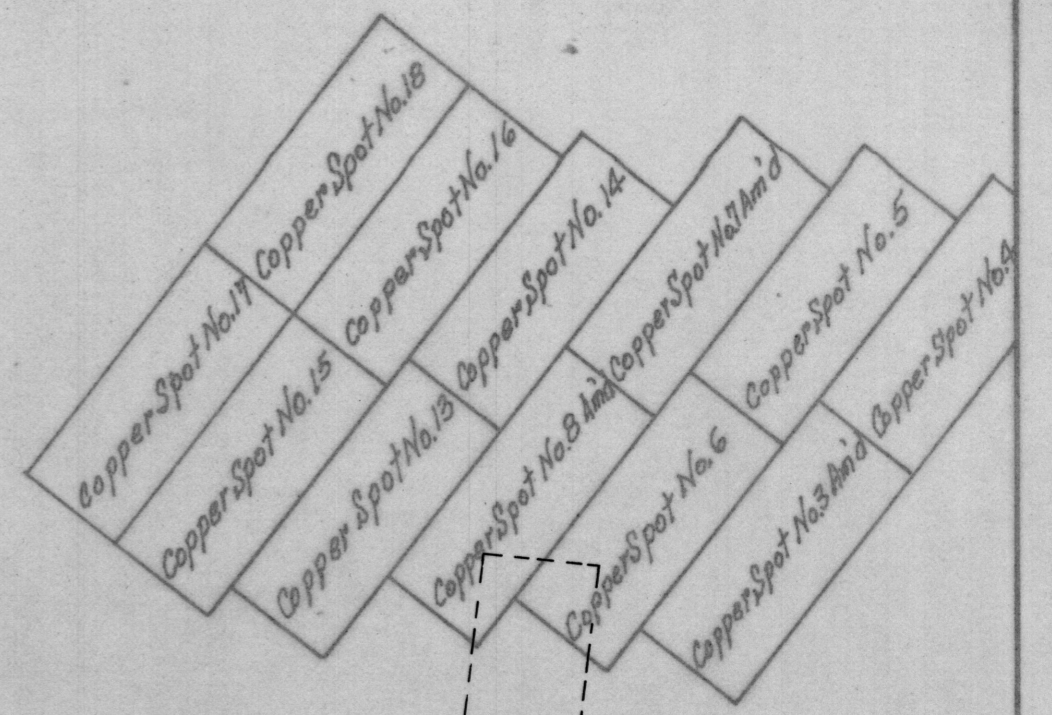 Copper Spot No. 18
Copper Spot No. 16
Copper Spot No. 14
Copper Spot No. 7 Am'd
Copper Spot No. 5
Copper Spot No. 4
Copper Spot No. 17
Copper Spot No. 15
Copper Spot No. 13
Copper Spot No. 8 Am'd
Copper Spot No. 6
Copper Spot No. 3 Am'd